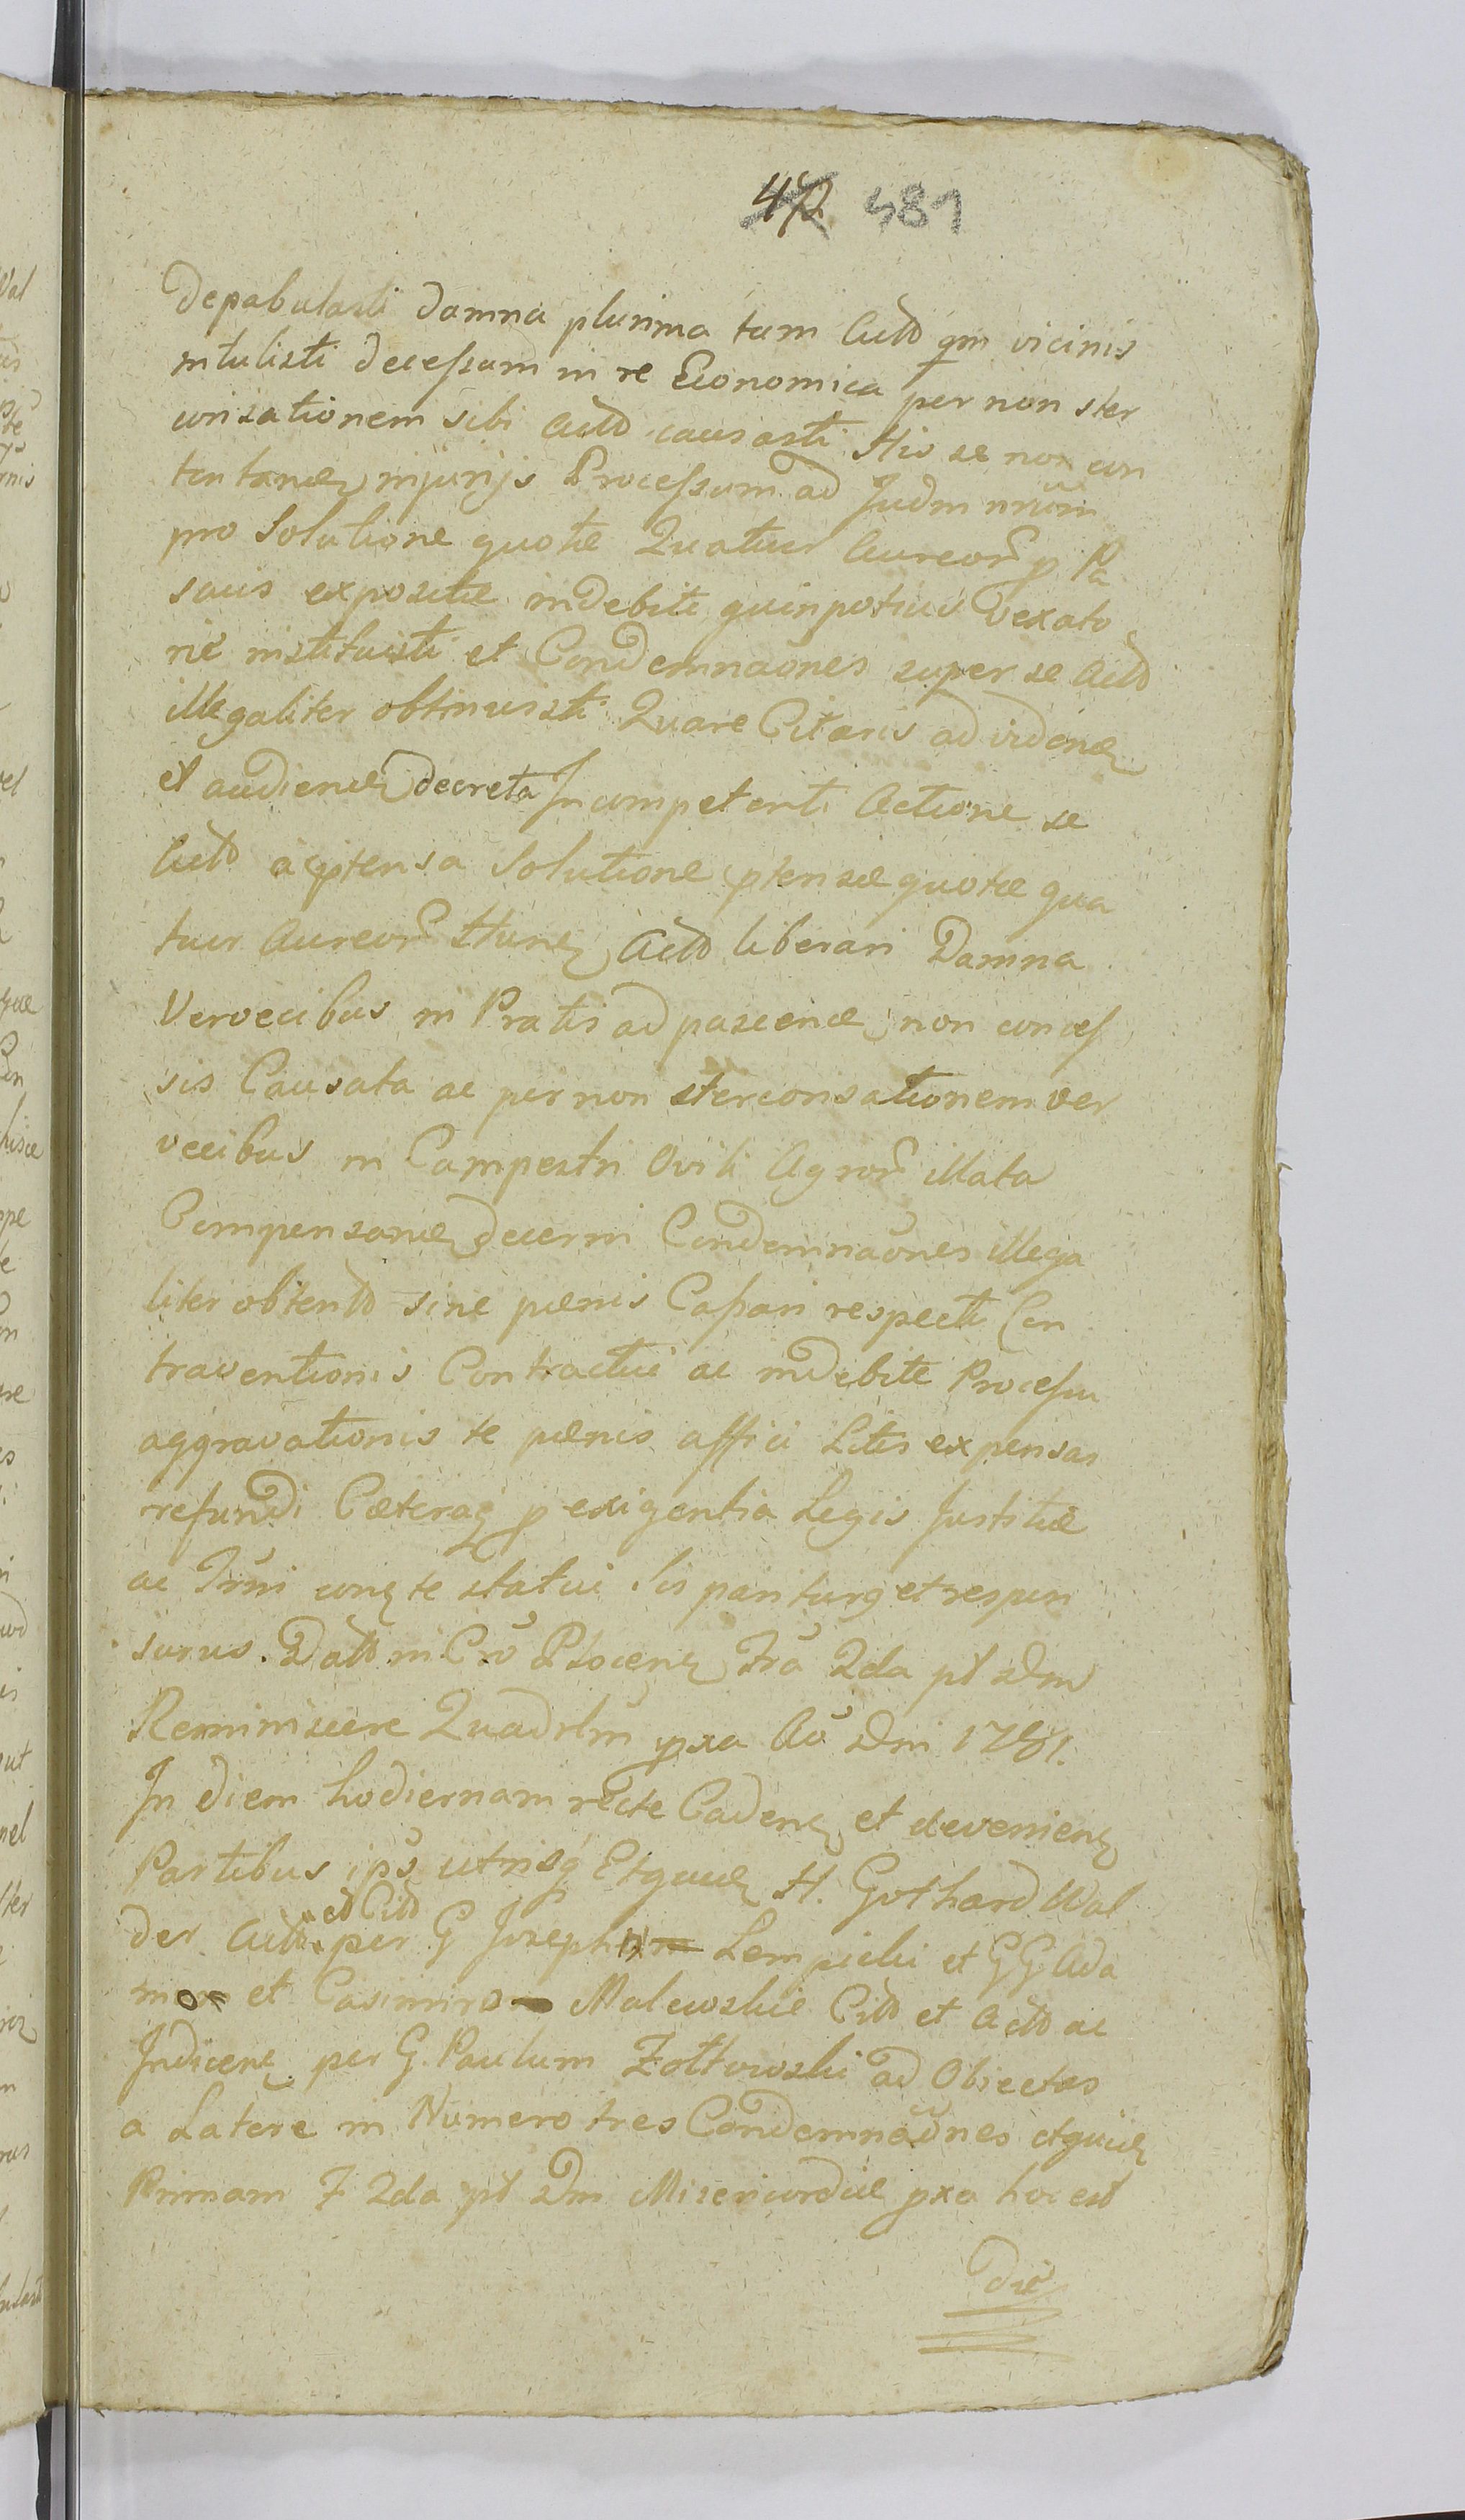 472 481
depabulasti damna plurima tam Actō qm̄ vicinis
intulisti decessum in re Economica per non ster
corisationem sibi Actō causasti His se non con
tentanđ injurijs Processum ad Judm nrūm
pro Solutione quotæ Quatuor Aureor̄ p Pa
scuis expositæ indebite quinpotius vexato
rie instituisti et Condemnaōnes super se Actō
illegaliter obtinuisti Quare Citaris ad videnđ
et audienđ decreta In competenti Actione se
Actō a prtensa Solutione prtensæ quotæ qua
tuor Aureor̄ Hunđ Actō liberari Damna
Vervecibus in Pratis ad pascenđ non conces
sis Causata ac per non stercorisationem ver
vecibus in Campestri Ovili Agror̄ illata
Compensanđ decerni Condemnaōnes illega
liter obtentō sine pœnis Cassari respectu Con
traventionis Contractui ac indebite Processu
aggravationis te pœnis affici Litis expensas
refundi Cæteraq p exigentia Legis Justitiæ
ac Jrūm conđ te statui Sis pariturg et respon
surus. Datō in Crō Plocenđ Frā 2da pt̄ Dm̄
Reminiscere Quadrlm̄ pxa Aō Dm̄i 1781.
In diem hodiernam recte Cadenđ et devenienđ
Partibus ipš utrisq Etquiđ H. Gothard Wal
et Citō
der Actō per G Joseph Lempicki et GG Ada
mo et Casimiro Malewskie Citō et Actō ac
Indicenđ per G. Paulum Zołtowski ad Objectas
a Latere in Numero tres Condemnaōnes etquiđ
Primam F 2da pt̄ Dm̄ Misericordiæ pxa hoc est
die